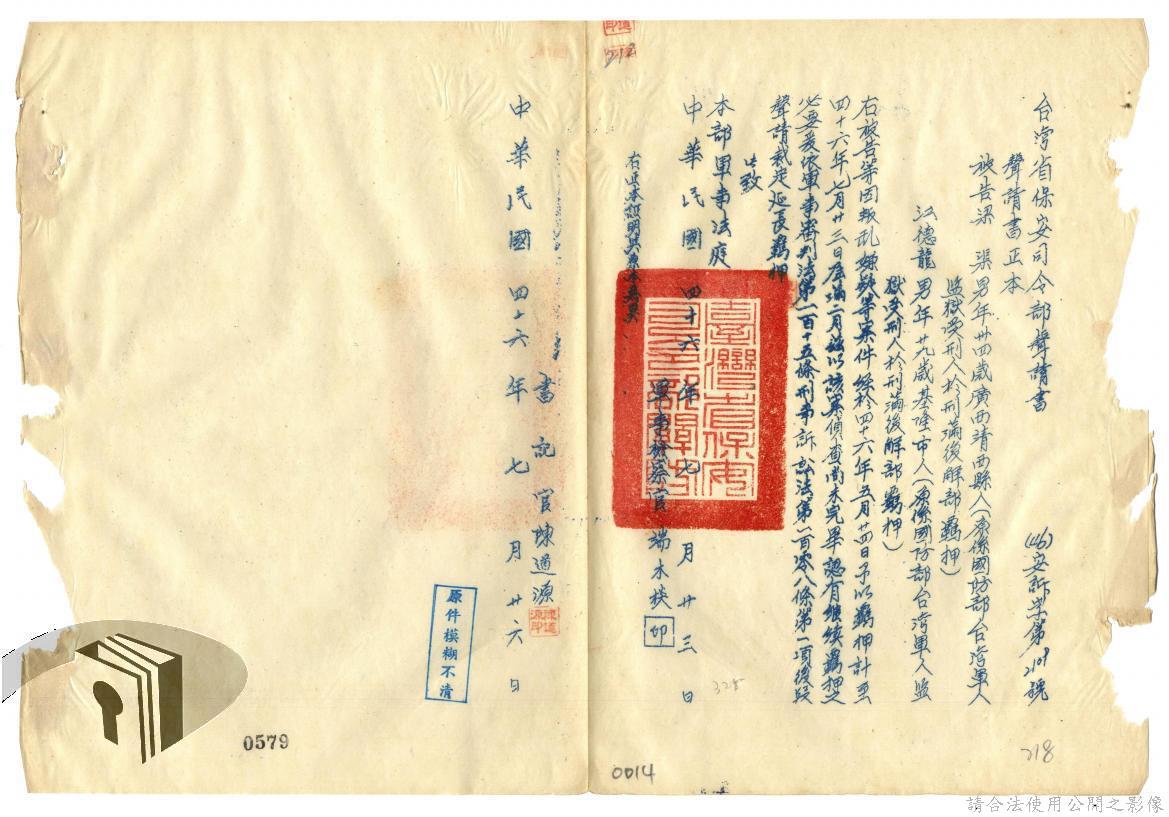 台灣省保安司令部聲請書
(46)安訴字第2109號
聲請書正本
被告梁 渠男年卅四歲廣西靖西縣人(原係國防部台灣軍人
監獄受刑人於刑滿後解部羈押)
江德龍男年廿九歲基隆市人(原係國防部台灣軍人監
獄受刑人於刑滿後解部羈押)
右被告等因叛乱嫌疑等案件經於四十六年五月廿四日予以羈押計至
四十六年七月廿三日屆滿二月茲以該案偵查尚未完畢認有继续羈押之
必要爰依軍事審判法第一百十五條刑事訴訟法第一百零八條第一項後段
聲請裁定延長羈押
此致
本部軍事法庭
中華民國四十六年七月廿三日
軍事檢察官端木棪 印
右正本証明與原本無異
書記官陳道源
中華民國四十六年七月廿六日
臺灣省保安司令部關防
原件模糊不清
0579
0014
328
218
請合法使用公開之影像